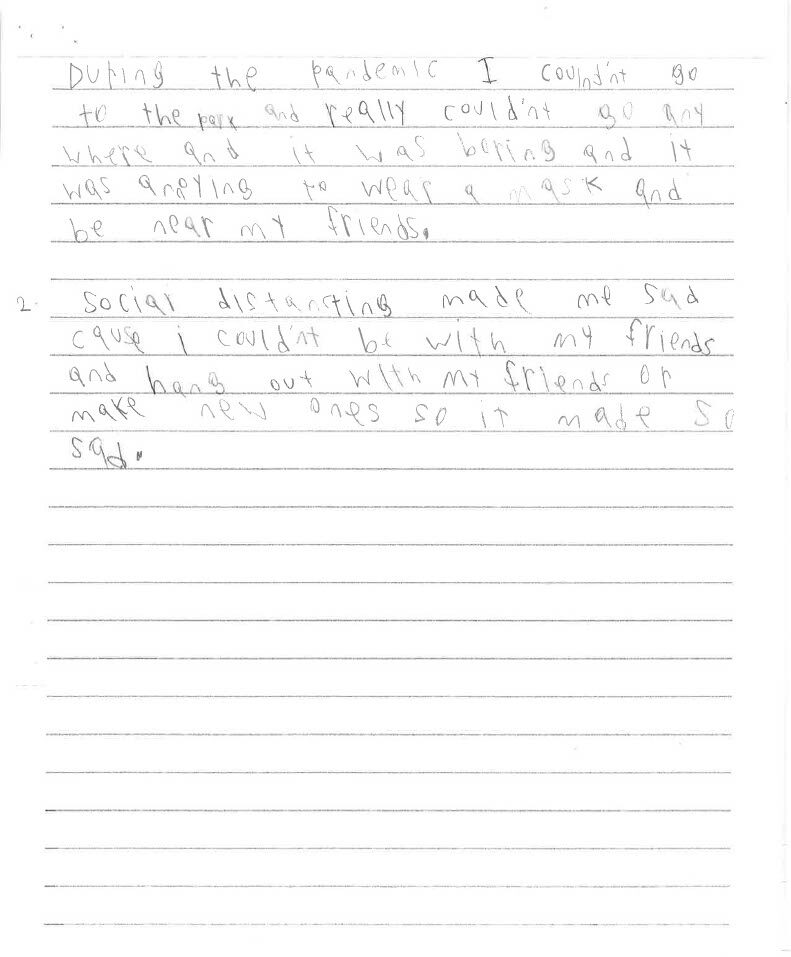 During the pandemic I couldn'nt go
to the park and really could'nt go any
where and it was boring and it
was anoying to wear a mask and
be near my friends.
2. Social distancting made me sad
cause i could'nt be with my friends
and hang out with my friends or
make new ones so it made so
sad.